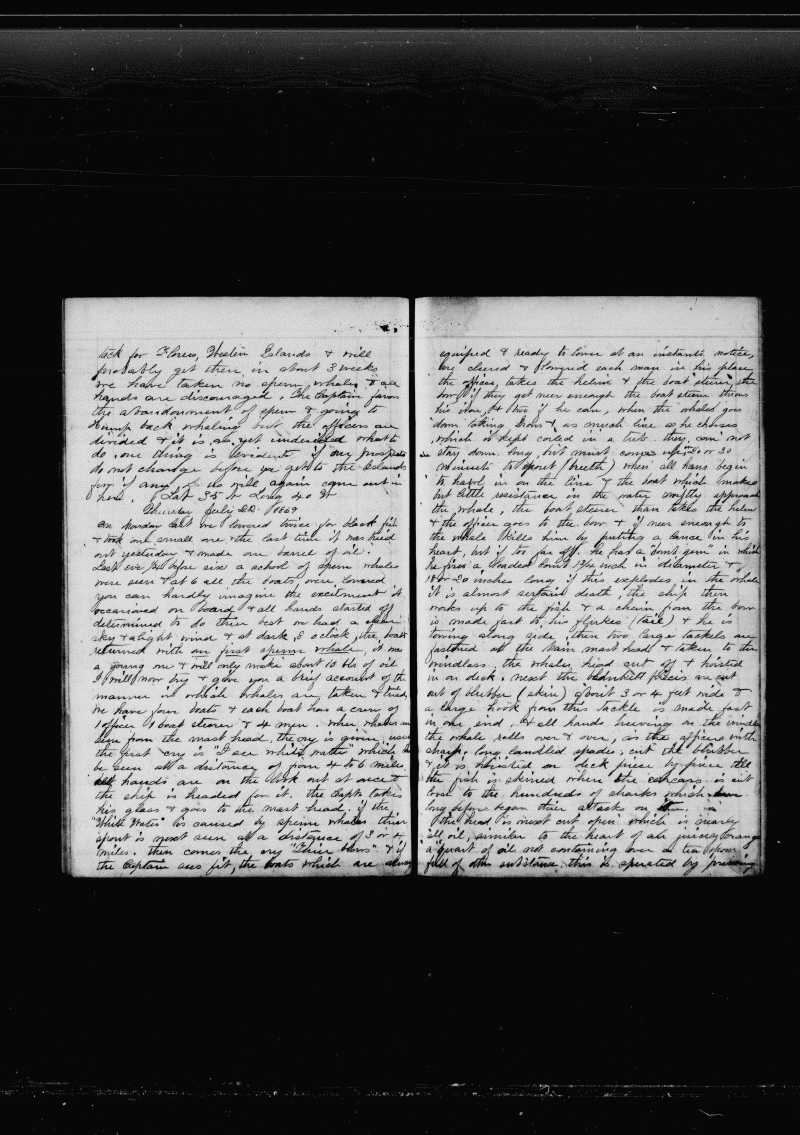 tack for Flores, Western Islands & will
probably get there in about 3 weeks
we have taken no sperm whales & all
hands are discouraged, the Captain favors
the abandounment of sperm & going to
Hump back whaleing but the officers are
divided & it is as yet undecided what to
do, one thing is evident if our prospects
do not change before we get to the Islands
few if any of us will again come out in
her. Lat 35 N Long 40 W
Thursday July 22 1869
On Monday last we lowered twice for black fish
& took one small one & the last time it was tried
out yesterday & made one barrel of oil.
Last eve just before six a school of sperm whales
were seen & at 6 all the boats were lowered
you can hardly imagine the excitement it
occasioned on board & all hands started off
determined to do their best we had a clear
sky & a light wind & at dark, 8 o clock, the boats
returned with our first sperm whale, it was
a young one & will only make about 10 bls of oil
I will now try & give you a brief account of the
manner in which whales are taken & tried,
We have four boats & each boat has a crew of
1 officer 1 boat steerer & 4 men. When whales are
seen from the mast head, the cry is given,
the first cry is "I see white water" which can
be seen at a distance of from 4 to 6 miles
all hands are on the look out at once &
the ship is headed for it. the Capt. takes
his glass & goes to the mast head, if the
"White Water" is caused by sperm whales their
spout is next seen at a distance of 3 or 4
miles. then comes the cry "Thier blows" & if
the Captain sees fit, the boats which are always
equiped & ready to lower at an instants notice,
are cleered & lowered each man in his place
the officer takes the helm & the boat steerer the
bow if they get near enough the boat steerer throws
his iron, & two if he can, when the whales goes
down taking Irons & as much line as he chooses
which is kept coiled in a tub. they can not
stay down long, but must come up in 20 or 30
minuits to spout (breeth) when all hans begin
to hawl in on the line & the boat which makes
but little resistance in the water swiftly approach
the whale, the boat steerer than takes the helm
& the officer goes to the bow & if near enough to
the whale kills him by putting a lance in his
heart, but if too far off. he has a bomb gun in which
he fires a loaded bomb 1 3/4 inch in diameter &
18 or 20 inches long if this explodes in the whale
it is almost sertain death, the ship then
works up to the fish & a chain from the bow
is made fast to his flukes (tail) & he is
towing along side, then two large tackels are
fastened at the main mast head & taken to the
windlass, the whales head cut off & hoisted
in on deck. next the blankett pieces are cut
out of blubber (skin) about 3 or 4 feet wide &
a large hook from this tackle is made fast
in one end, & all hands heeving on the windlass
the whale rolls over & over, as the officers with
sharp, long handled spades, cut the blubber
& it is hoisted on deck piece by piece till
the fish is skined where the carcass is cut
lose to the hundreds of sharks which have
long before began their attacks on it
the head is next cut open which is nearly
all oil, similar to the heart of an juicey orange
a quart of oil not containing over a tea spoon
full of other substance, this is sperated by pressing